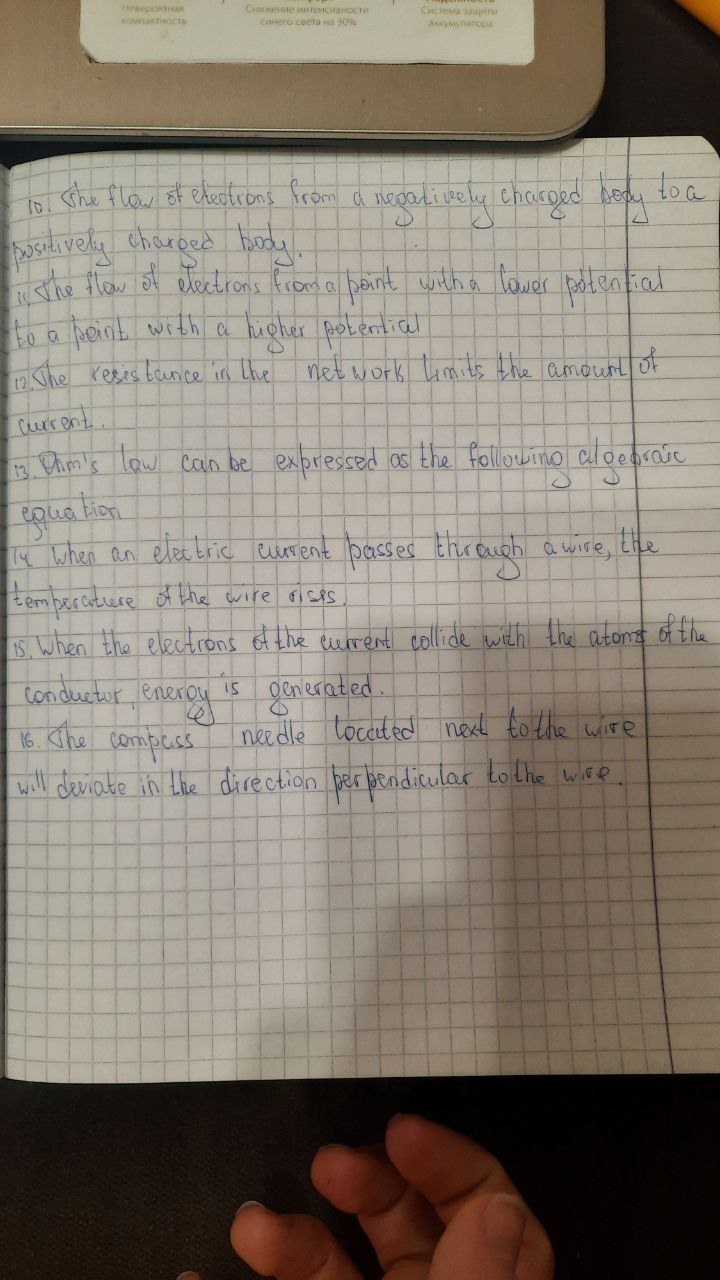 Невероятная компактность
Снижение интенсивности синего света на 30%
Система защиты аккумулятора
10. The flow of electrons from a negatively charged body to a
positively charged body.
11. The flow of electrons from a point with a lower potential
to a point with a higher potential
12. The resistance in the network limits the amount of
current.
13. Ohm's law can be expressed as the following algebraic
equation
14 When an electric current passes through a wire, the
temperature of the wire rises.
15. When the electrons of the current collide with the atoms of the
conductor, energy is generated.
16. The compass needle located next to the wire
will deviate in the direction perpendicular to the wire.